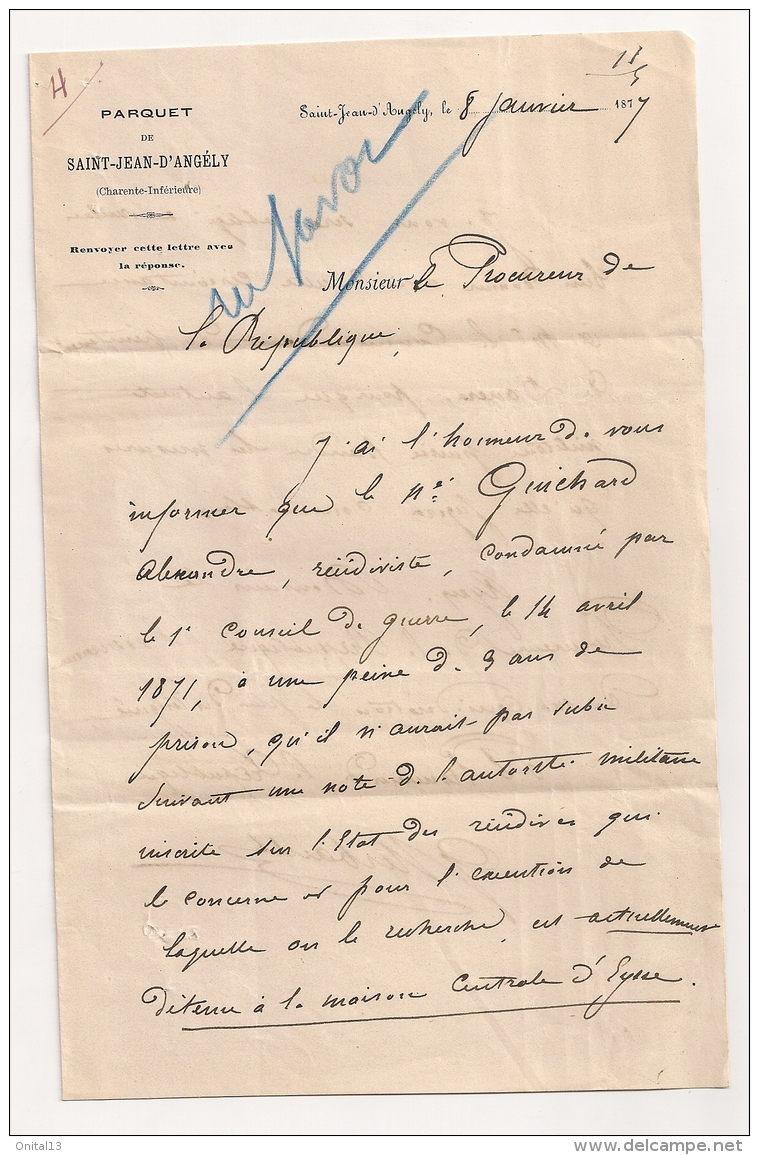 H
17
5
PARQUET
DE
SAINT-JEAN-D'ANGÉLY
(Charente-Inférieure)
Renvoyer cette lettre avec
la réponse.
Saint-Jean-d'Angély, le 8 janvier 1877
Monsieur le Procureur de
la République,
J'ai l'honneur de vous
informer que le né Guichard
Alexandre, récidiviste, condamné par
le 1er Conseil de guerre, le 14 avril
1871, à une peine de 3 ans de
prison, qu'il n'aurait pas subie
suivant une note de l'autorité militaire
inscrite sur l'Etat des récidives qui
le concerne et pour l'exécution de
laquelle on le recherche, est actuellement
détenu à la maison Centrale d'Eysse.
Onital13
www.delcampe.net